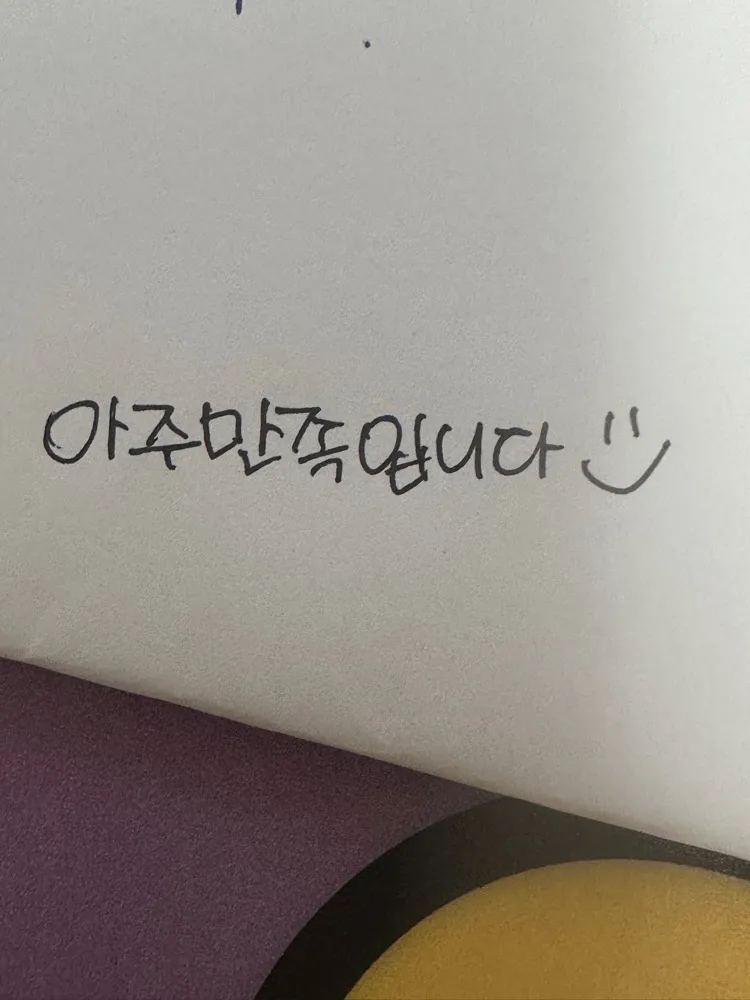 아주만족입니다